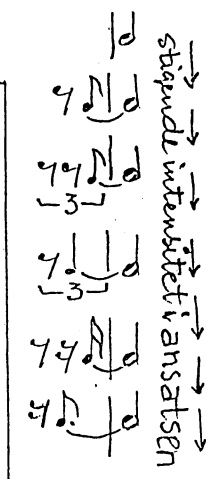 stigende intensitet i ansatsen
3
3